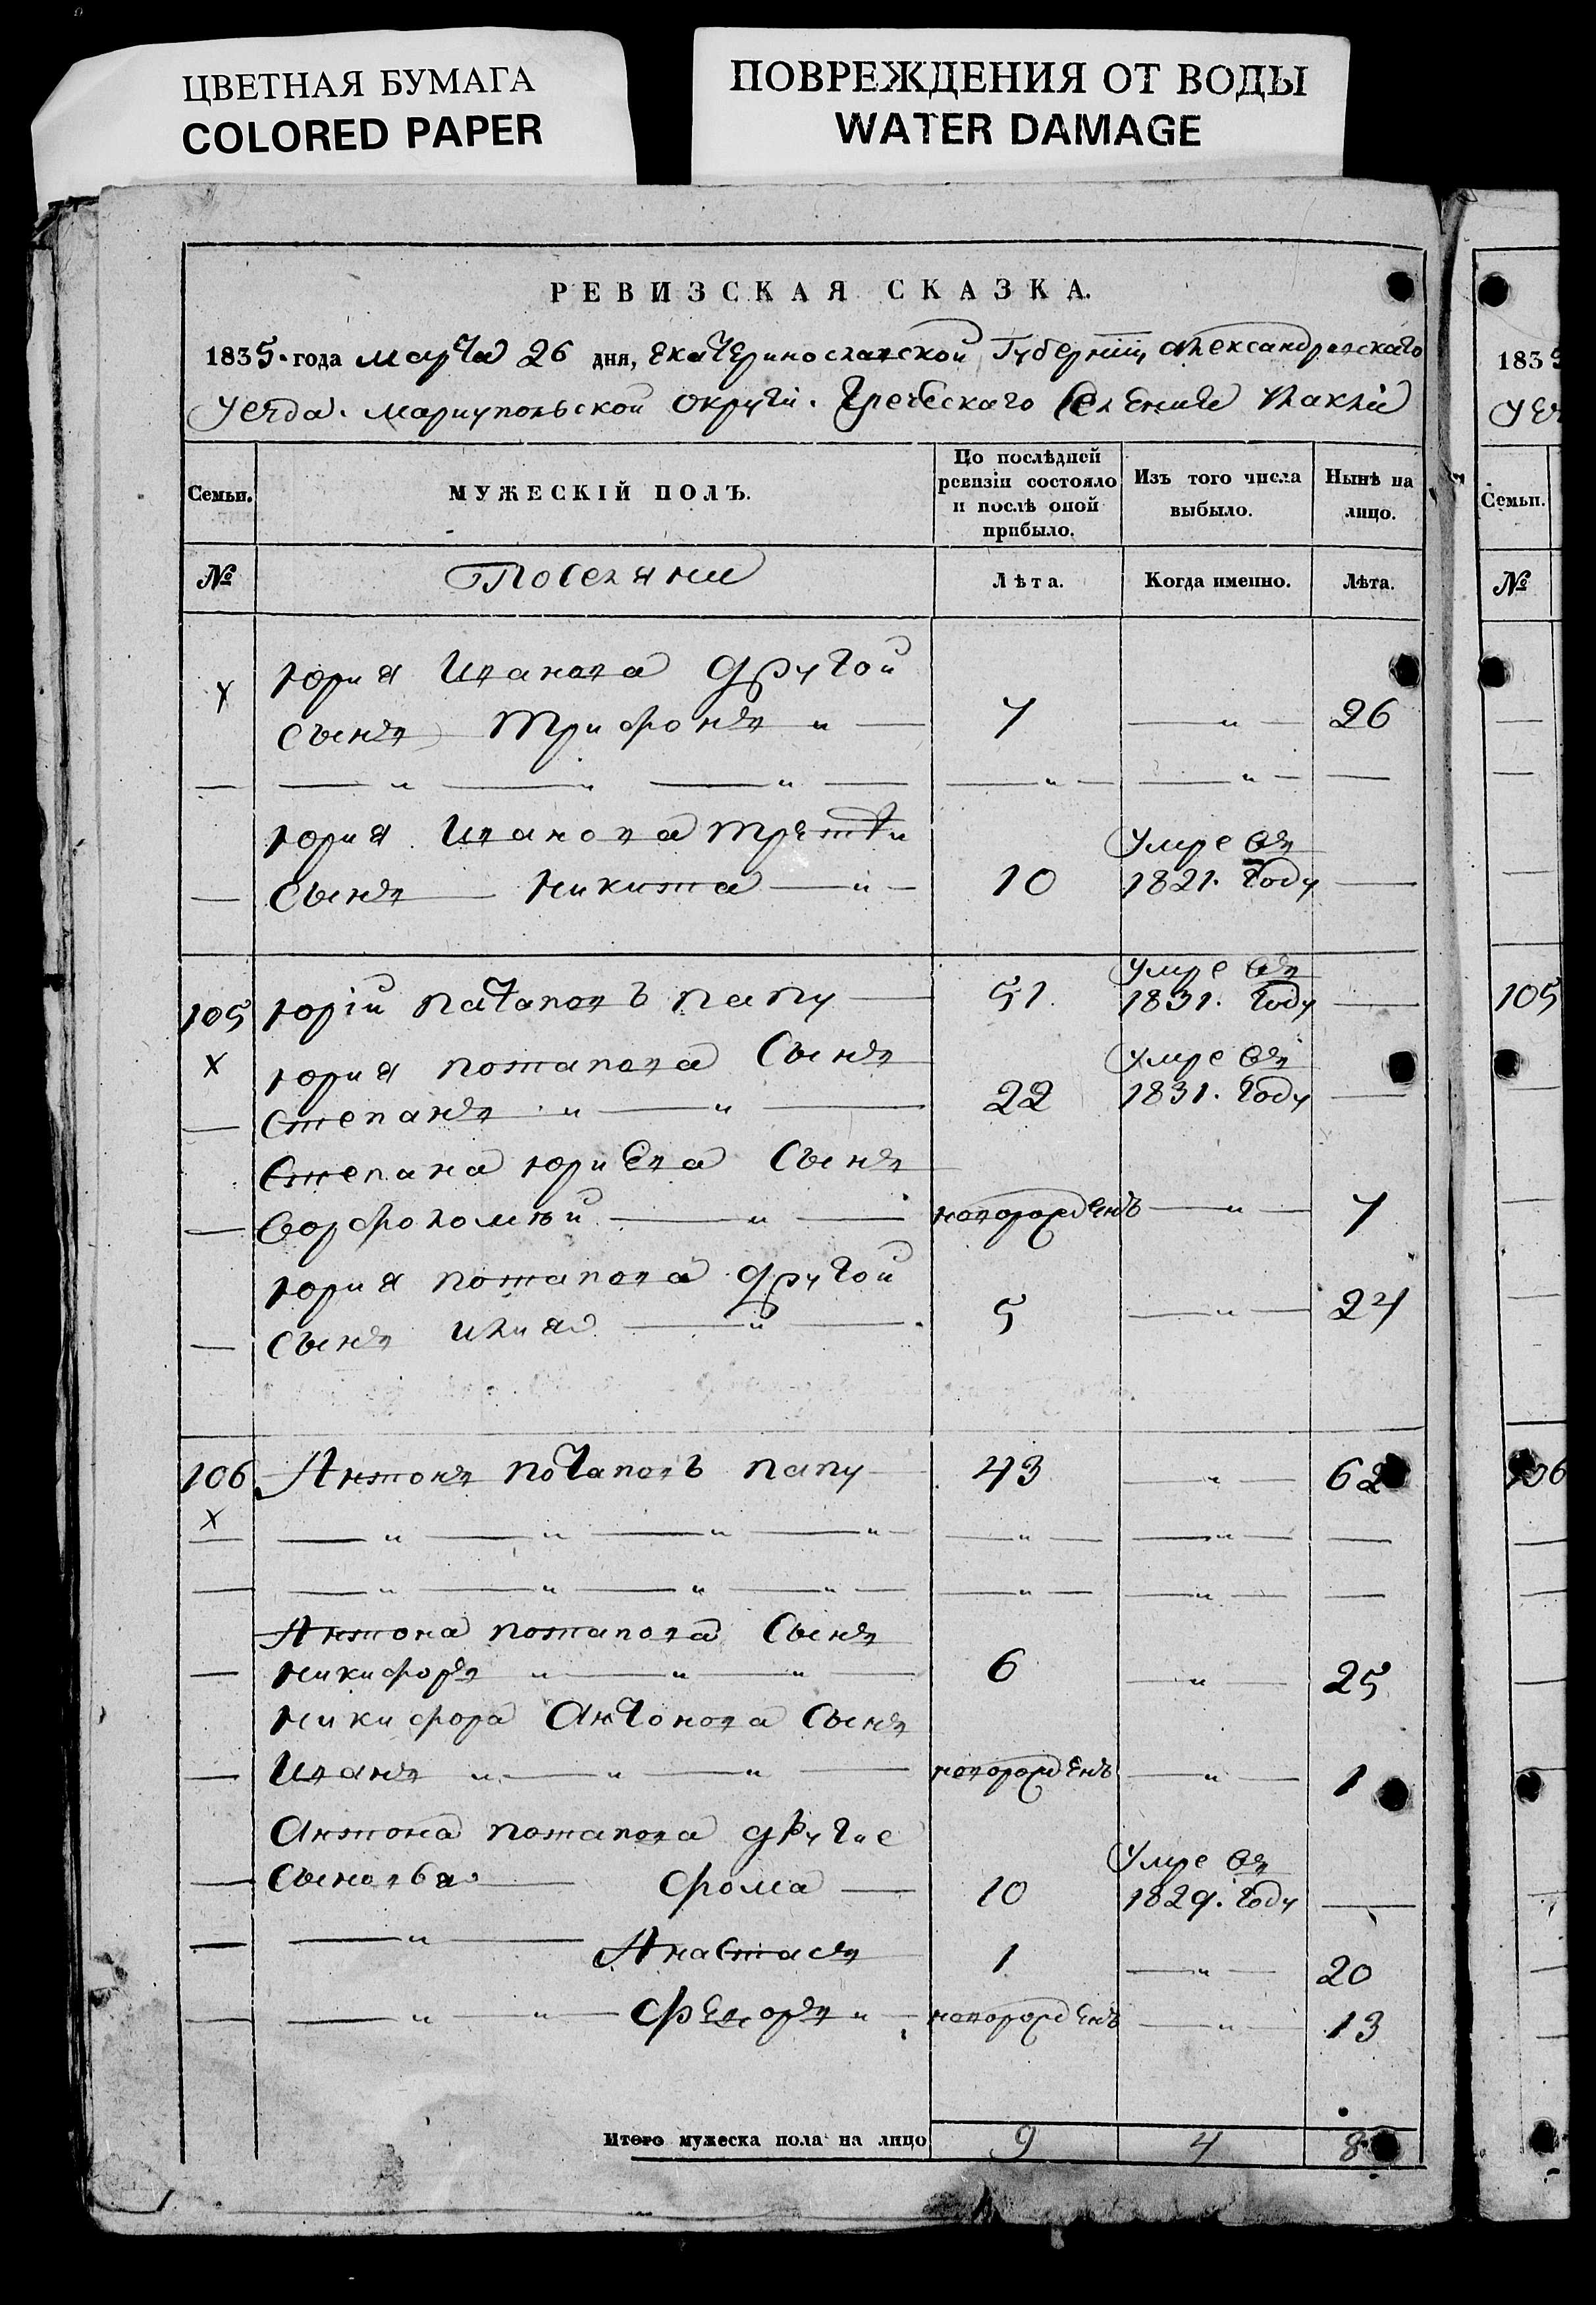 ЦВЕТНАЯ БУМАГА
COLORED PAPER
ПОВРЕЖДЕНИЯ ОТ ВОДЫ
WATER DAMAGE
РЕВИЗСКАЯ СКАЗКА.
1835 года марта 26 дня, Екатеринославской Губернии Александровскаго
уезда. мариупольской округи. Греческаго Селения
Семьи. МУЖЕСКІЙ ПОЛЪ. По послѣдней ревизіи состояло и послѣ оной прибыло. Изъ того числа выбыло. Нынѣ на лицо.
№ Поселяни Лѣта. Когда именно. Лѣта.
х Юрия Иванова другой
сынъ Трифонъ " — 7 — " — 26
Юрия Иванова трети Умре въ
— сынъ Никита — " — 10 1821. году —
105 Юрій Патаповъ Папу — 51. Умре въ 1831. году —
х Юрия Потапова Сынъ Умре въ
— Степанъ " — " — 22 1831. году —
Степана Юриева Сынъ
— Ворфоломей — " — новорожденъ — " — 7
Юрия Потапова другой
— сынъ Илия — " — 5 — " — 24
106 Антонъ Потаповъ Папу — 43 — " — 62
х
Антона Потапова Сынъ
— Никифоръ " — " — " — 6 — " — 25
Никифора Антонова Сынъ
— Иванъ " — " — " — новорожденъ — " — 1
Антона Потапова другие Умре въ
— Сыновья — Фома — 10 1829. году —
— — " — Анастасъ 1 — " — 20
— — " — " — Федоръ " — новорожденъ — " — 13
Итого мужеска пола на лицо 9 4 8
1835
Семьи.
№
105
106